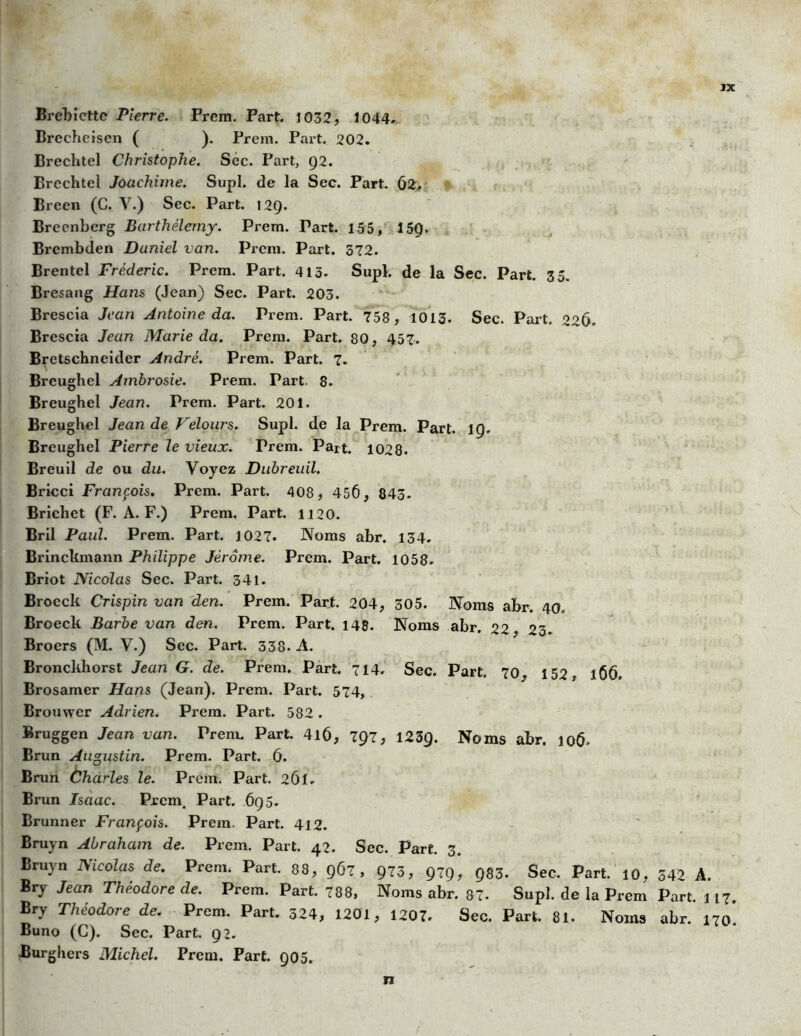 IX
Brebiette Pierre. Prem. Part. 1032, 1044.
Brecheisen ( ). Prem. Part. 202.
Brechtel Christophe. Sec. Part, 92.
Brechtel Joachime. Supl. de la Sec. Part. 62.
Breen (C. V.) Sec. Part. 129.
Breenberg Barthélemy. Prem. Part. 155, 159.
Brembden Daniel van. Prem. Part. 372.
Brentel Fréderic. Prem. Part. 413. Supl. de la Sec. Part. 35.
Bresang Hans (Jean) Sec. Part. 203.
Brescia Jean Antoine da. Prem. Part. 758, 1013. Sec. Part. 226.
Brescia Jean Marie da. Prem. Part. 80, 457.
Bretschneider André. Prem. Part. 7.
Breughel Ambrosie. Prem. Part. 8.
Breughel Jean. Prem. Part. 201.
Breughel Jean de Velours. Supl. de la Prem. Part. 19.
Breughel Pierre le vieux. Prem. Part. 1028.
Breuil de ou du. Voyez Dubreuil.
Bricci François. Prem. Part. 408, 456, 843.
Brichet (F. A. F.) Prem. Part. 1120.
Bril Paul. Prem. Part. 1027. Noms abr. 134.
Brinckmann Philippe Jérôme. Prem. Part. 1058.
Briot Nicolas Sec. Part. 341.
Broeck Crispin van den. Prem. Part. 204, 305. Noms abr. 40.
Broeck Barbe van den. Prem. Part. 148. Noms abr. 22, 23.
Broers (M. V.) Sec. Part. 338. A.
Bronckhorst Jean G. de. Prem. Part. 714. Sec. Part. 70, 152, 166.
Brosamer Hans (Jean). Prem. Part. 574,
Brouwer Adrien. Prem. Part. 582.
Bruggen Jean van. Prem. Part. 416, 797, 1239. Noms abr. 106.
Brun Augustin. Prem. Part. 6.
Brun Charles le. Prem. Part. 261.
Brun Isaac. Prem. Part. 695.
Brunner François. Prem. Part. 412.
Bruyn Abraham de. Prem. Part. 42. Sec. Part. 3.
Bruyn Nicolas de. Prem. Part. 88, 967, 973, 979, 983. Sec. Part. 10, 342 A.
Bry Jean Théodore de. Prem. Part. 788, Noms abr. 87. Supl. de la Prem Part. 117.
Bry Théodore de. Prem. Part. 324, 1201, 1207. Sec. Part. 81. Noms abr. 170.
Buno (C). Sec. Part. 92.
Burghers Michel. Prem. Part. 905.
n